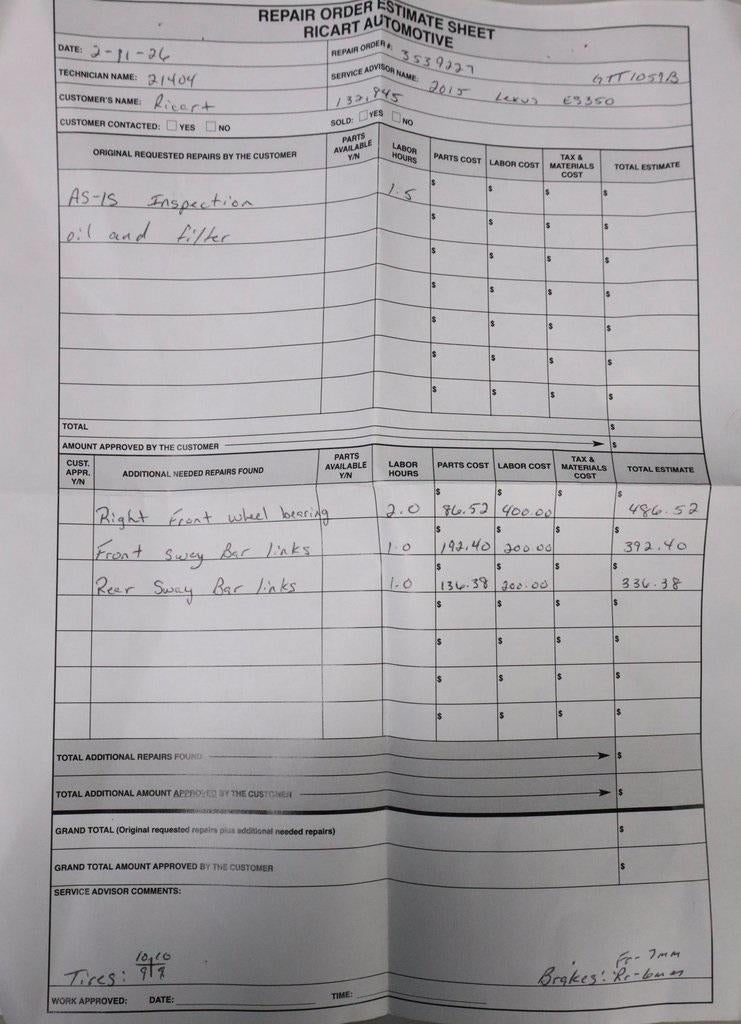 REPAIR ORDER ESTIMATE SHEET
RICART AUTOMOTIVE
DATE: 2-11-26
REPAIR ORDER #: 3539227
TECHNICIAN NAME: 21404
SERVICE ADVISOR NAME: GTT1059B
CUSTOMER'S NAME: Ricart
132,945 2015 Lexus ES350
CUSTOMER CONTACTED: YES NO
SOLD: YES NO
ORIGINAL REQUESTED REPAIRS BY THE CUSTOMER PARTS AVAILABLE Y/N LABOR HOURS PARTS COST LABOR COST TAX & MATERIALS COST TOTAL ESTIMATE
AS-IS Inspection 1.5 $ $ $ $
oil and filter $ $ $ $
$ $ $ $
$ $ $ $
$ $ $ $
$ $ $ $
$ $ $ $
TOTAL $
AMOUNT APPROVED BY THE CUSTOMER $
CUST. APPR. Y/N ADDITIONAL NEEDED REPAIRS FOUND PARTS AVAILABLE Y/N LABOR HOURS PARTS COST LABOR COST TAX & MATERIALS COST TOTAL ESTIMATE
Right Front wheel bearing 2.0 $ 86.52 $ 400.00 $ $ 486.52
Front Sway Bar links 1.0 $ 192.40 $ 200.00 $ $ 392.40
Rear Sway Bar links 1.0 $ 136.38 $ 200.00 $ $ 336.38
$ $ $ $
$ $ $ $
$ $ $ $
$ $ $ $
TOTAL ADDITIONAL REPAIRS FOUND $
TOTAL ADDITIONAL AMOUNT APPROVED BY THE CUSTOMER $
GRAND TOTAL (Original requested repairs plus additional needed repairs) $
GRAND TOTAL AMOUNT APPROVED BY THE CUSTOMER $
SERVICE ADVISOR COMMENTS:
Tires: 10 10
9 9
Brakes: Fr- 7mm
Rr- 6mm
WORK APPROVED: DATE: TIME: